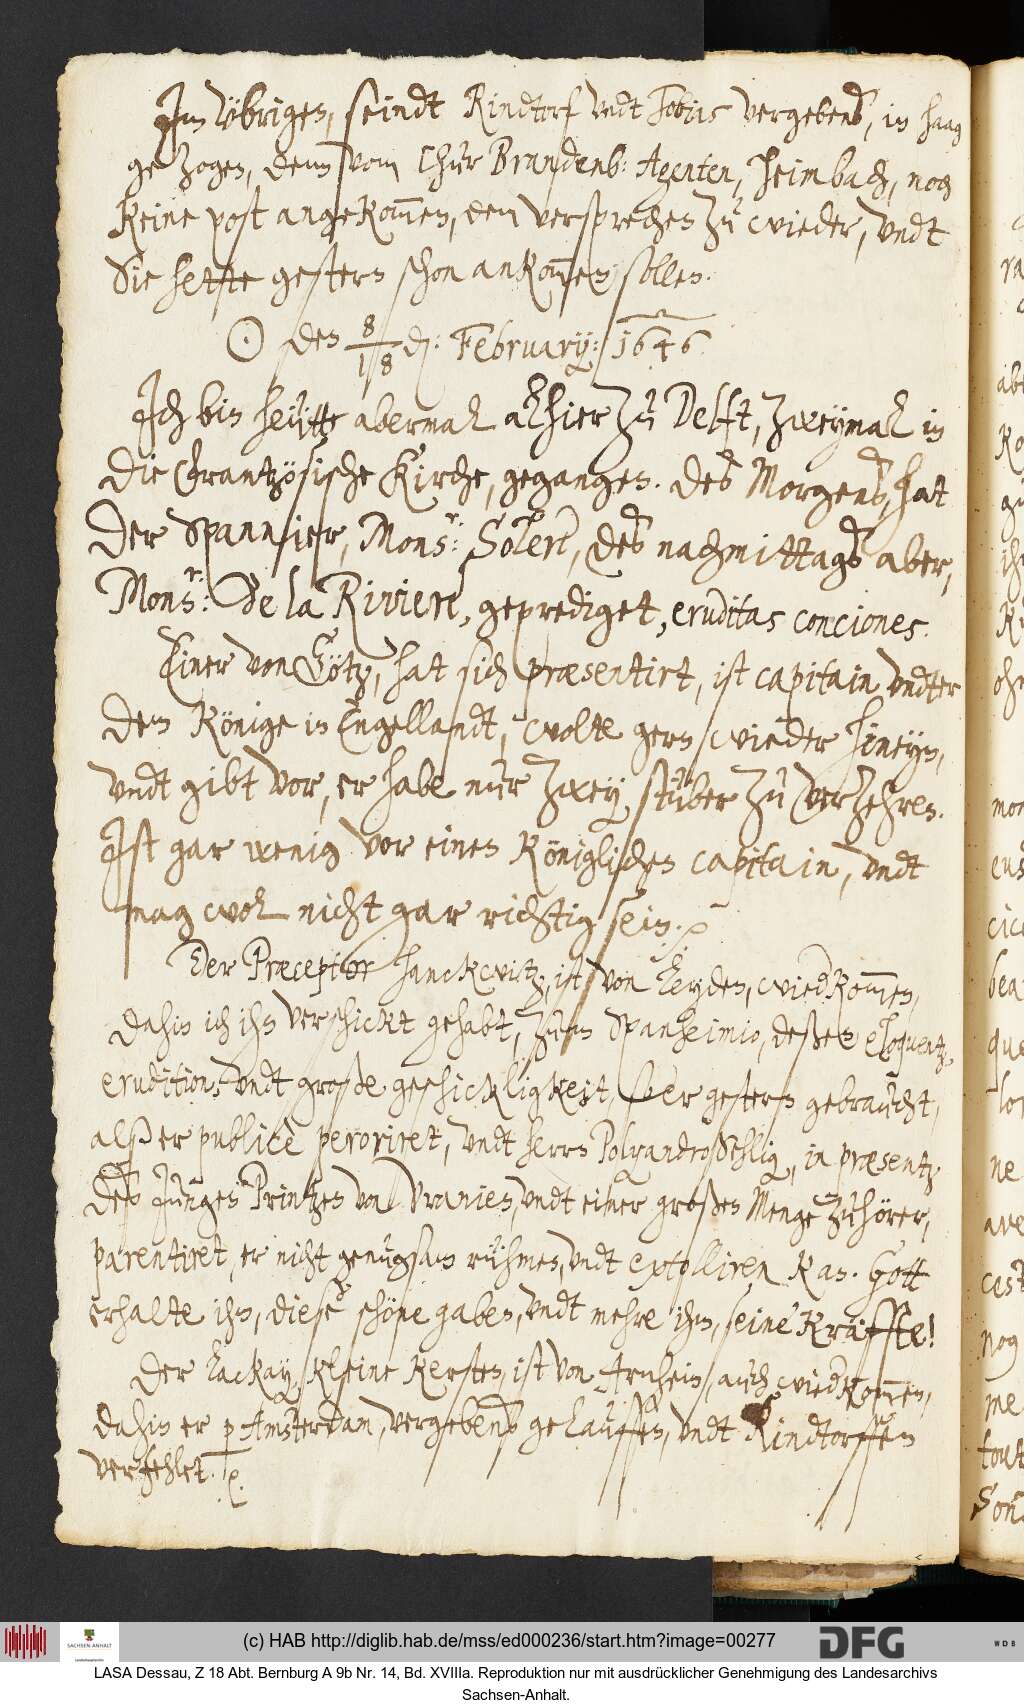 Im übrigen, seindt Rindtorf vndt Tobias vergebens, in Haag
gezogen, denn vom ChurBrandenb: Agenten, Heimbach, noch
keine post angekom̅en, den versprechen zu wieder, vndt
Sie hette gestern schon ankom̅en sollen.
☉ den 8/18 d: February: 1646.
Ich bin heütte abermal alhier zu Delft, zweymal in
die Frantzösische Kirche, gegangen. des Morgens, hat
der Spannier, Monsr: Soleri, des nachmittags aber,
Monsr: de la Riviere, geprediget, eruditas conciones.
Einer von Götz, hat sich præsentirt, ist capitain vndter
dem Könige in Engellandt, wolte gern wieder hineyn,
vndt gibt vor, er habe nur zwey stüber zu verzehren.
Ist gar wenig vor einen Königlischen capitain, vndt
mag wol nicht gar richtig sein.
Der Præceptor Hanckwitz, ist von Leyden, wied kom̅en,
dahin ich ihn verschickt gehabt, zum Spanheimio, deßen eloquentz,
erudition, vndt große geschickligkeit, der gestern gebraucht,
alß er publicè peroriret, vndt herrn Polyandro Sehlig, in præsentz
des Jungen Printzen von Vranien, vndt einer großen Menge zuhörer,
parentiret, er nicht genugsam rühmen, vndt extolliren kan. Gott
erhalte ihm, diese schöne gaben, vndt mehre ihm, seine Kräffte!
Der Lackay, kleine Kersten, ist von Arnheim, auch wied kom̅en,
dahin er p Amsterdam, vergebens gelauffen, vndt Rindtorffen
verfehlet.
(c) HAB http://diglib.hab.de/mss/ed000236/start.htm?image=00277
SACHSEN-ANHALT
DFG
WDB
LASA Dessau, Z 18 Abt. Bernburg A 9b Nr. 14, Bd. XVIIIa. Reproduktion nur mit ausdrücklicher Genehmigung des Landesarchivs
Sachsen-Anhalt.